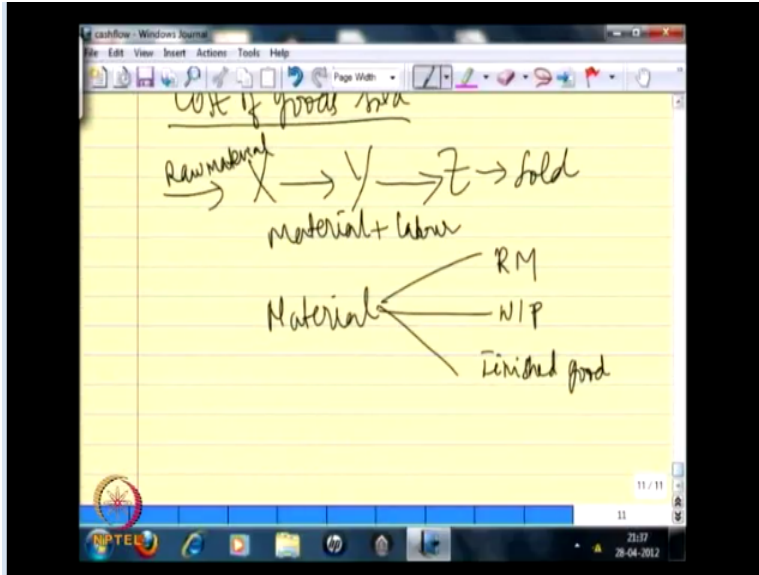 cashflow - Windows Journal
File Edit View Insert Actions Tools Help
Page Width
Cost of goods sold
Raw material
X → Y → Z → Sold
Material + labour
Material
RM
WIP
Finished good
11 / 11
11
NPTEL
hp
21:37
28-04-2012